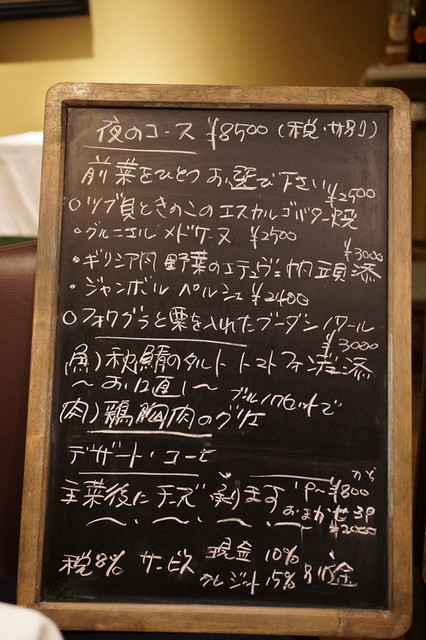 夜のコース ¥8500 (税・サ別)
前菜をひとつお選び下さい
¥2500
○ツブ貝ときのこのエスカルゴバター焼
・グルニエル メドケーヌ ¥2500
¥3000
・ギリシア風 野菜のエチュヴェ 帆立添
・ジャンボン ペルシェ ¥2400
○フォワグラと栗を入れたブーダンノワール
¥3000
魚) 秋鯖のタルト トマトファン添
〜お口直し〜
肉) 鶏胸肉のグリエ
デザート・コーヒー
主菜後にチーズ承ります 1P〜¥800から
おまかせ3P
¥2000
税8% サービス 現金 10%
クレジット 15% 別途